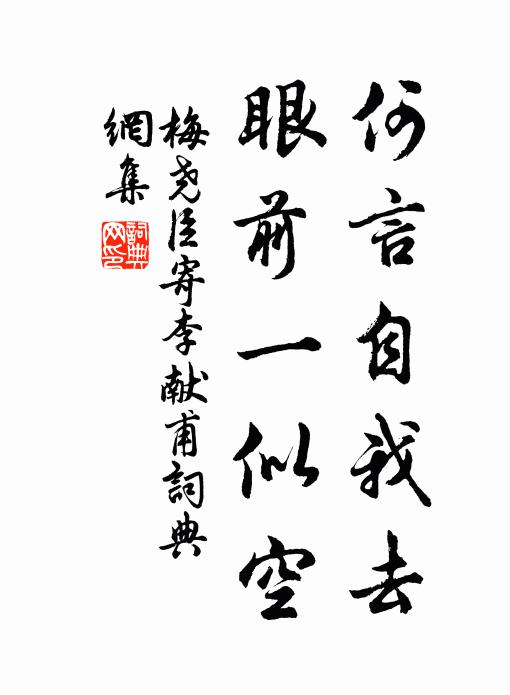 何言自我去
眼前一似空
梅尧臣寄李献甫詞典
網集
詞典
网印